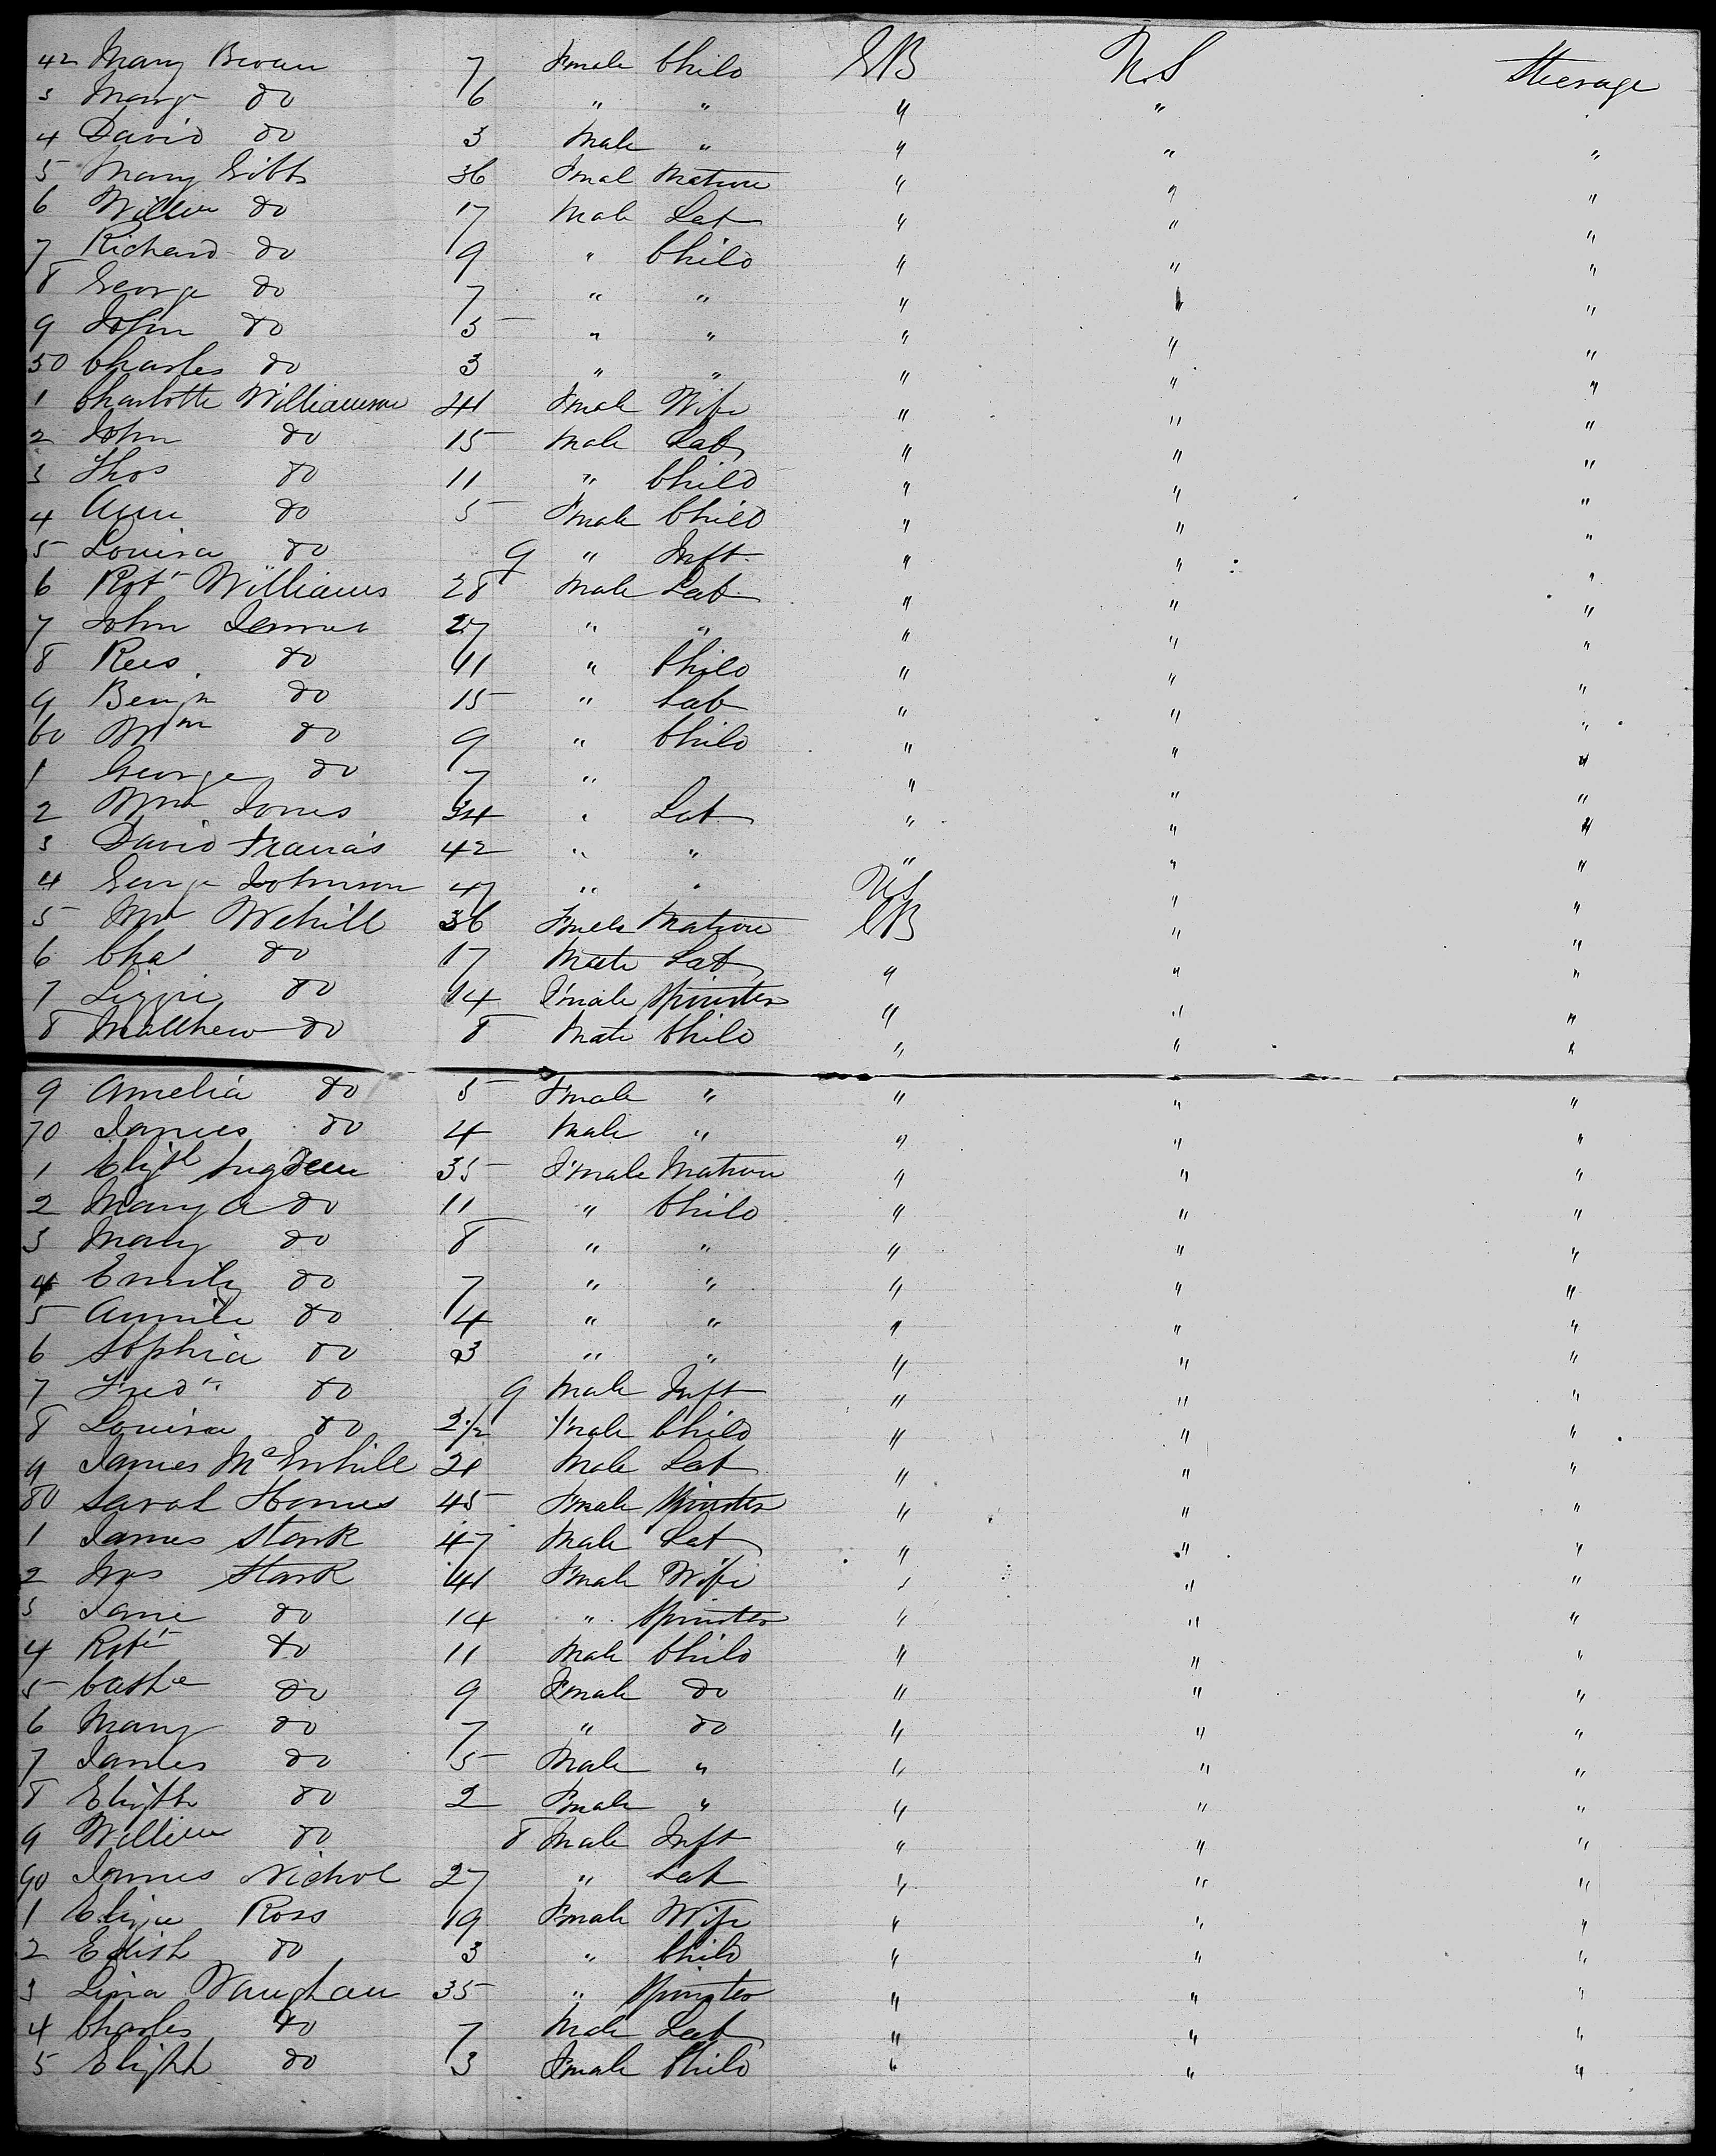 42 Mary Bevan 7 Female Child GB U.S Steerage
3 Margt do 6 " " " "
4 David do 3 Male " " " "
5 Mary Gibbs 36 Fmal Matron " " "
6 Willm do 17 Male Lab " " "
7 Richard do 9 " Child " " "
8 George do 7 " " " " "
9 John do 5 " " " " "
50 Charles do 3 " " " " "
1 Charlotte Williamson 41 Fmale Wife " " "
2 John do 15 Male Lab " " "
3 Thos do 11 " Child " " "
4 Ann do 5 Fmale Child " " "
5 Louisa do 9 " Inft " " "
6 Robt Williams 28 Male Lab " " "
7 John James 27 " " " " "
8 Rees do 11 " Child " " "
9 Benjn do 15 " Lab " " "
60 Wm do 9 " Child " " "
1 George do 7 " " " "
2 Wm Jones 34 " Lab " " "
3 David Francis 42 " " " " "
4 George Johnson 47 " " US " "
5 Mrs Wehill 36 Fmale Matron GB " "
6 Chas do 17 Male Lab " " "
7 Lizzie do 14 Fmale Spinster " " "
8 Matthew do 8 Male Child " " "
9 Amelia do 5 Fmale " " " "
70 James do 4 Male " " " "
1 Elizth Sugden 35 Fmale Matron " " "
2 Mary A do 11 " Child " " "
3 Mary do 8 " " " " "
4 Emily do 7 " " " " "
5 Annie do 4 " " " " "
6 Sophia do 3 " " " " "
7 Fredk do 9 Male Inft " " "
8 Louisa do 2 1/2 Fmale Child " " "
9 James Mc 21 Male Lab " " "
80 Sarah Homes 45 Fmale Spinster " " "
1 James Stark 47 Male Lab " " "
2 Mrs Stark 41 Fmale Wife " " "
3 Jane do 14 " Spinster " " "
4 Robt do 11 Male Child " " "
5 Cathe do 9 Fmale do " " "
6 Mary do 7 " do " " "
7 James do 5 Male " " " "
8 Elizth do 2 Fmale " " " "
9 Willim do 8 Male Inft " " "
90 James Nichol 27 " Lab " " "
1 Eliza Ross 19 Fmale Wife " " "
2 Edith do 3 " Child " " "
3 Vaughan 35 " Spinster " " "
4 Charles do 7 Male Lab " " "
5 Elizth do 3 Fmale Child " " "